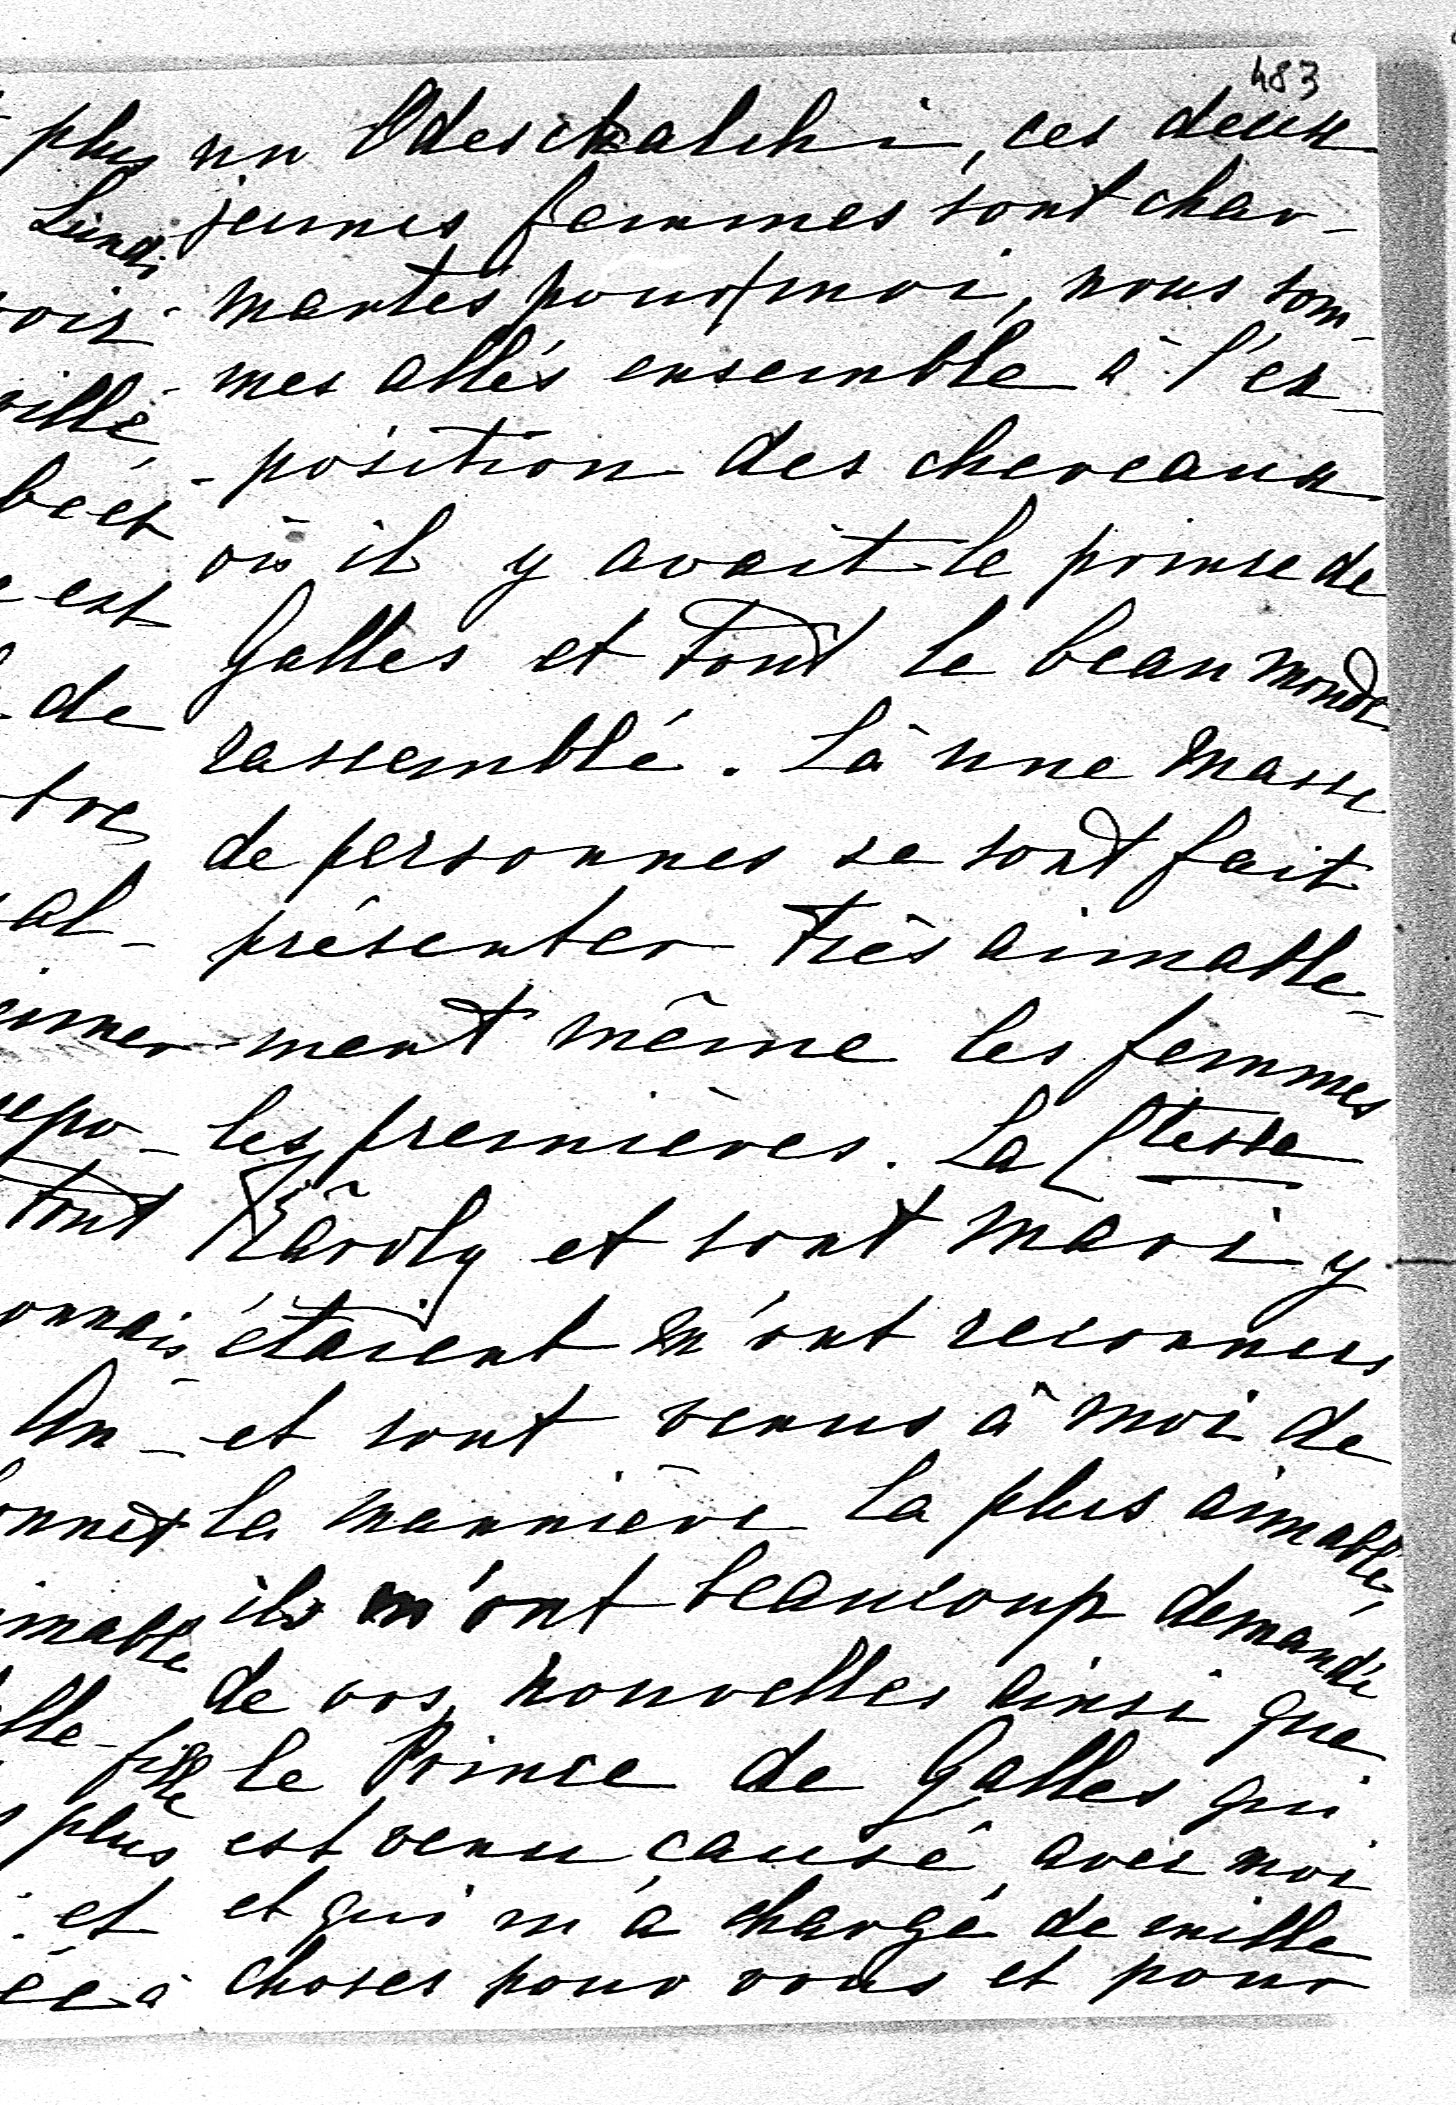 483
un Odeschalchi, ces deux
jeunes femmes sont char-
mantes pour moi, nous som-
mes allés ensemble à l'ex-
position des cheveaux
où il y avait le prince de
Galles et tout le beau monde
rassemblé. Là une masse
de personnes se sont fait
présenter très aimable-
ment même les femmes
les premières. La Ctesse
Károly et sont mari y
étaient m'ont reconnus
et sont venus à moi de
la mannière la plus aimable,
ils m'ont beaucoup demandé
de vos nouvelles ainsi que
le Prince de Galles qui
est venu causé avec moi
et qui m'a chargé de mille
choses pour vous et pour
plus
Lundi
oir
ville,
est
de
tres
al-
repo-
tout
onnais
An-
onnet
imable
lle-fille
plus
et
ée à